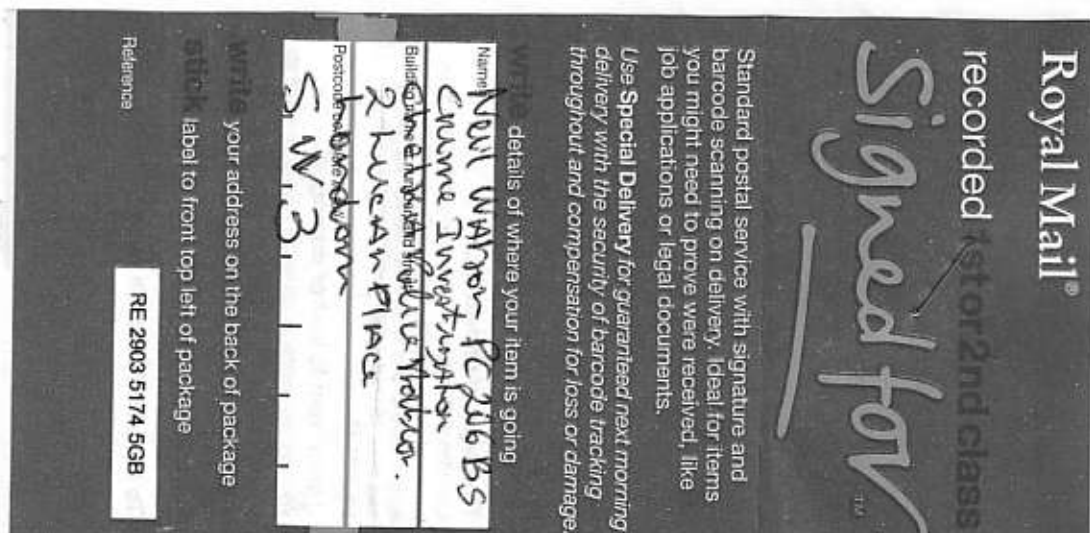 Royal Mail®
recorded 1st or 2nd class
Signed for™
Standard postal service with signature and
barcode scanning on delivery. Ideal for items
you might need to prove were received, like
job applications or legal documents.
Use Special Delivery for guaranteed next morning
delivery with the security of barcode tracking
throughout and compensation for loss or damage.
write details of where your item is going
Name
Neil PC 206 BS
Crime Investigation
Chelsea Police Station.
2 Lucan Place
London
Postcode
SW3
write your address on the back of package
stick label to front top left of package
Reference
RE 2903 5174 5GB